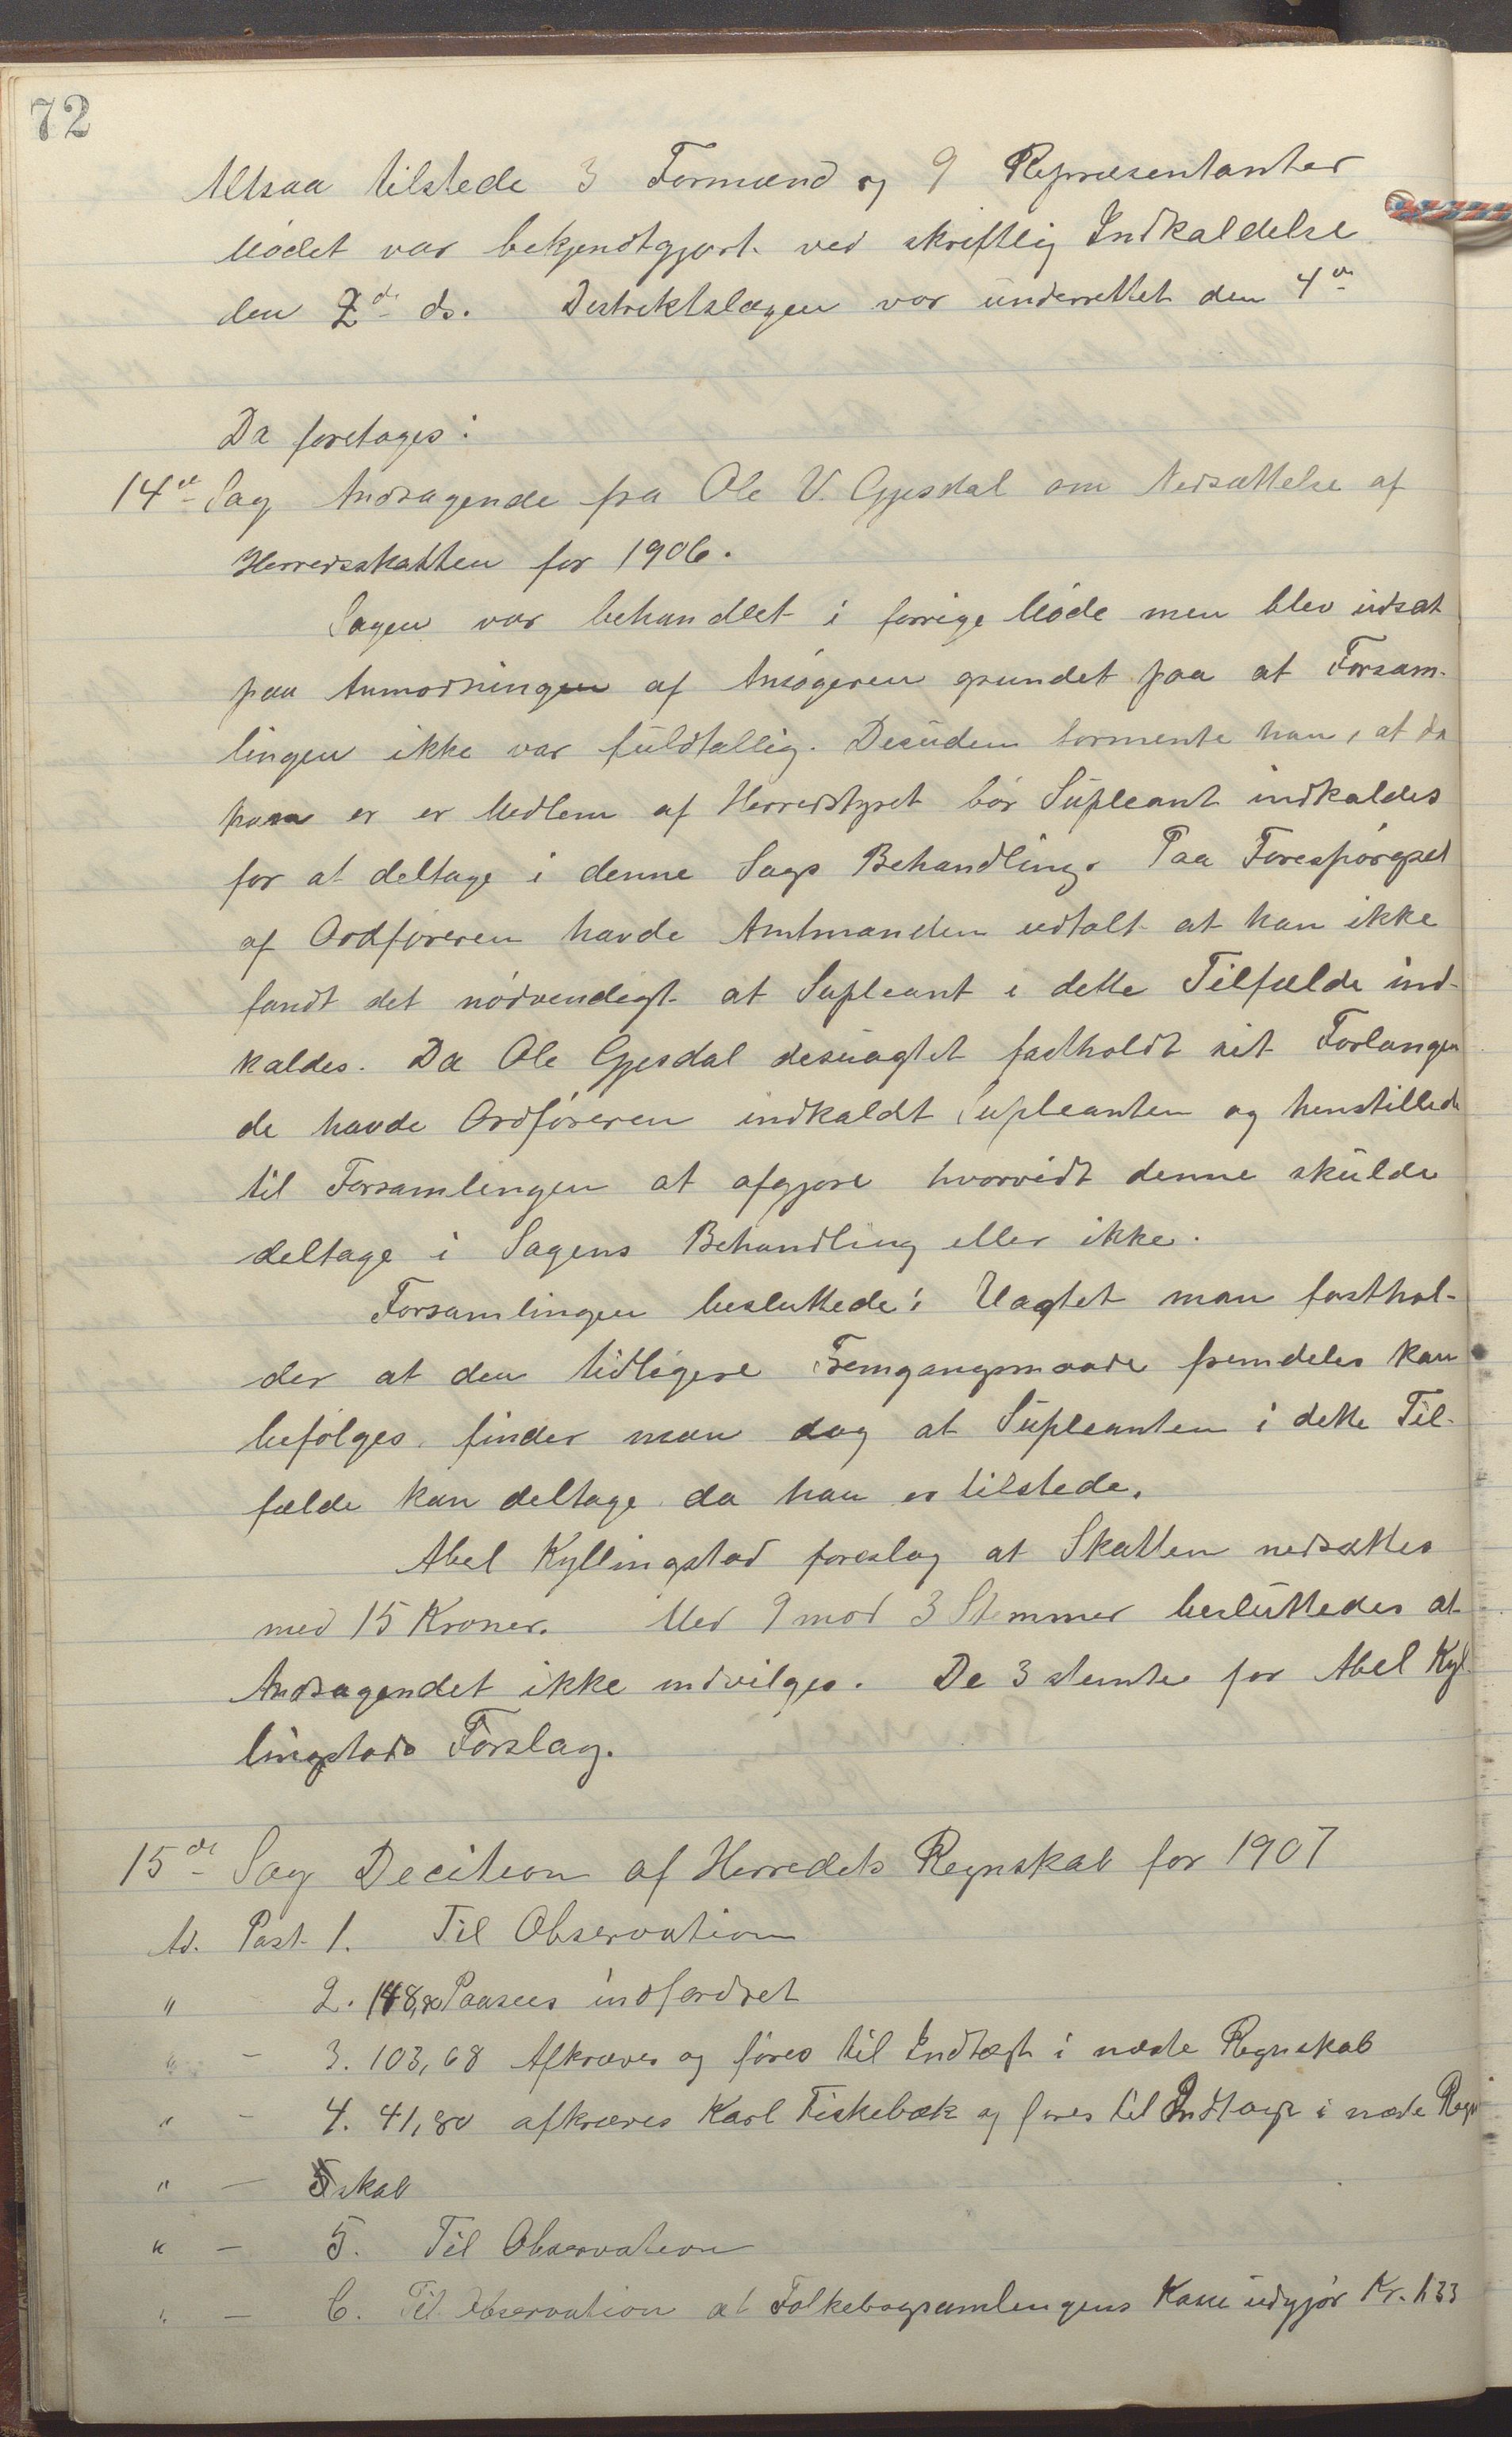 72
Altsaa tilstede 3 Formænd og 9 Repræsentanter
Mødet var bekjendtgjort ved skriftlig Indkaldelse
den 2de ds. Distriktslægen var underrettet den 4de
Da foretages:
14de Sag Andragende fra Ole V. Gjesdal om Nedsættelse af
Herredsskatten for 1906.
Sagen var behandlet i forrige Møde men blev udsat
paa Anmodningen af Ansøgeren grundet paa at Forsam-
lingen ikke var fuldtallig. Desuden formente han, at da
han er er Medlem af Herredstyret bør Supleant indkaldes
for at deltage i denne Sags Behandling. Paa Forespørgsel
af Ordføreren havde Amtmanden udtalt at han ikke
fandt det nødvendigt at Supleant i dette Tilfælde ind-
kaldes. Da Ole Gjesdal desuagtet fastholdt sit Forlangen
de havde Ordføreren indkaldt Supleanten og henstillede
til Forsamlingen at afgjøre hvorvidt denne skulde
deltage i Sagens Behandling eller ikke.
Forsamlingen besluttede: Uagtet man fasthol-
der at den tidligere Fremgangsmaade fremdeles kan
befølges finder man dog at Supleanten i dette Til-
fælde kan deltage da han er tilstede.
Abel Kyllingstad foreslog at Skatten nedsættes
med 15 Kroner. Med 9 mod 3 Stemmer besluttedes at
Andragendet ikke indvilges. De 3 stemte for Abel Kyl
lingstads Forslag.
15de Sag Decition af Herredets Regnskab for 1907
Ad. Post 1. Til Observation
" 2. Paasees indfordret
" - 3. 103,68 Afkræves og føres til Indtægt i næste Regnskab
" - 4. 41,80 afkræves Karl Fiskebæk og føres til Indtægt i næste Regn
" - skab
" - 5. Til Observation
" - 6. Til Observation at Folkebogsamlingens Kasse udgjør Kr.